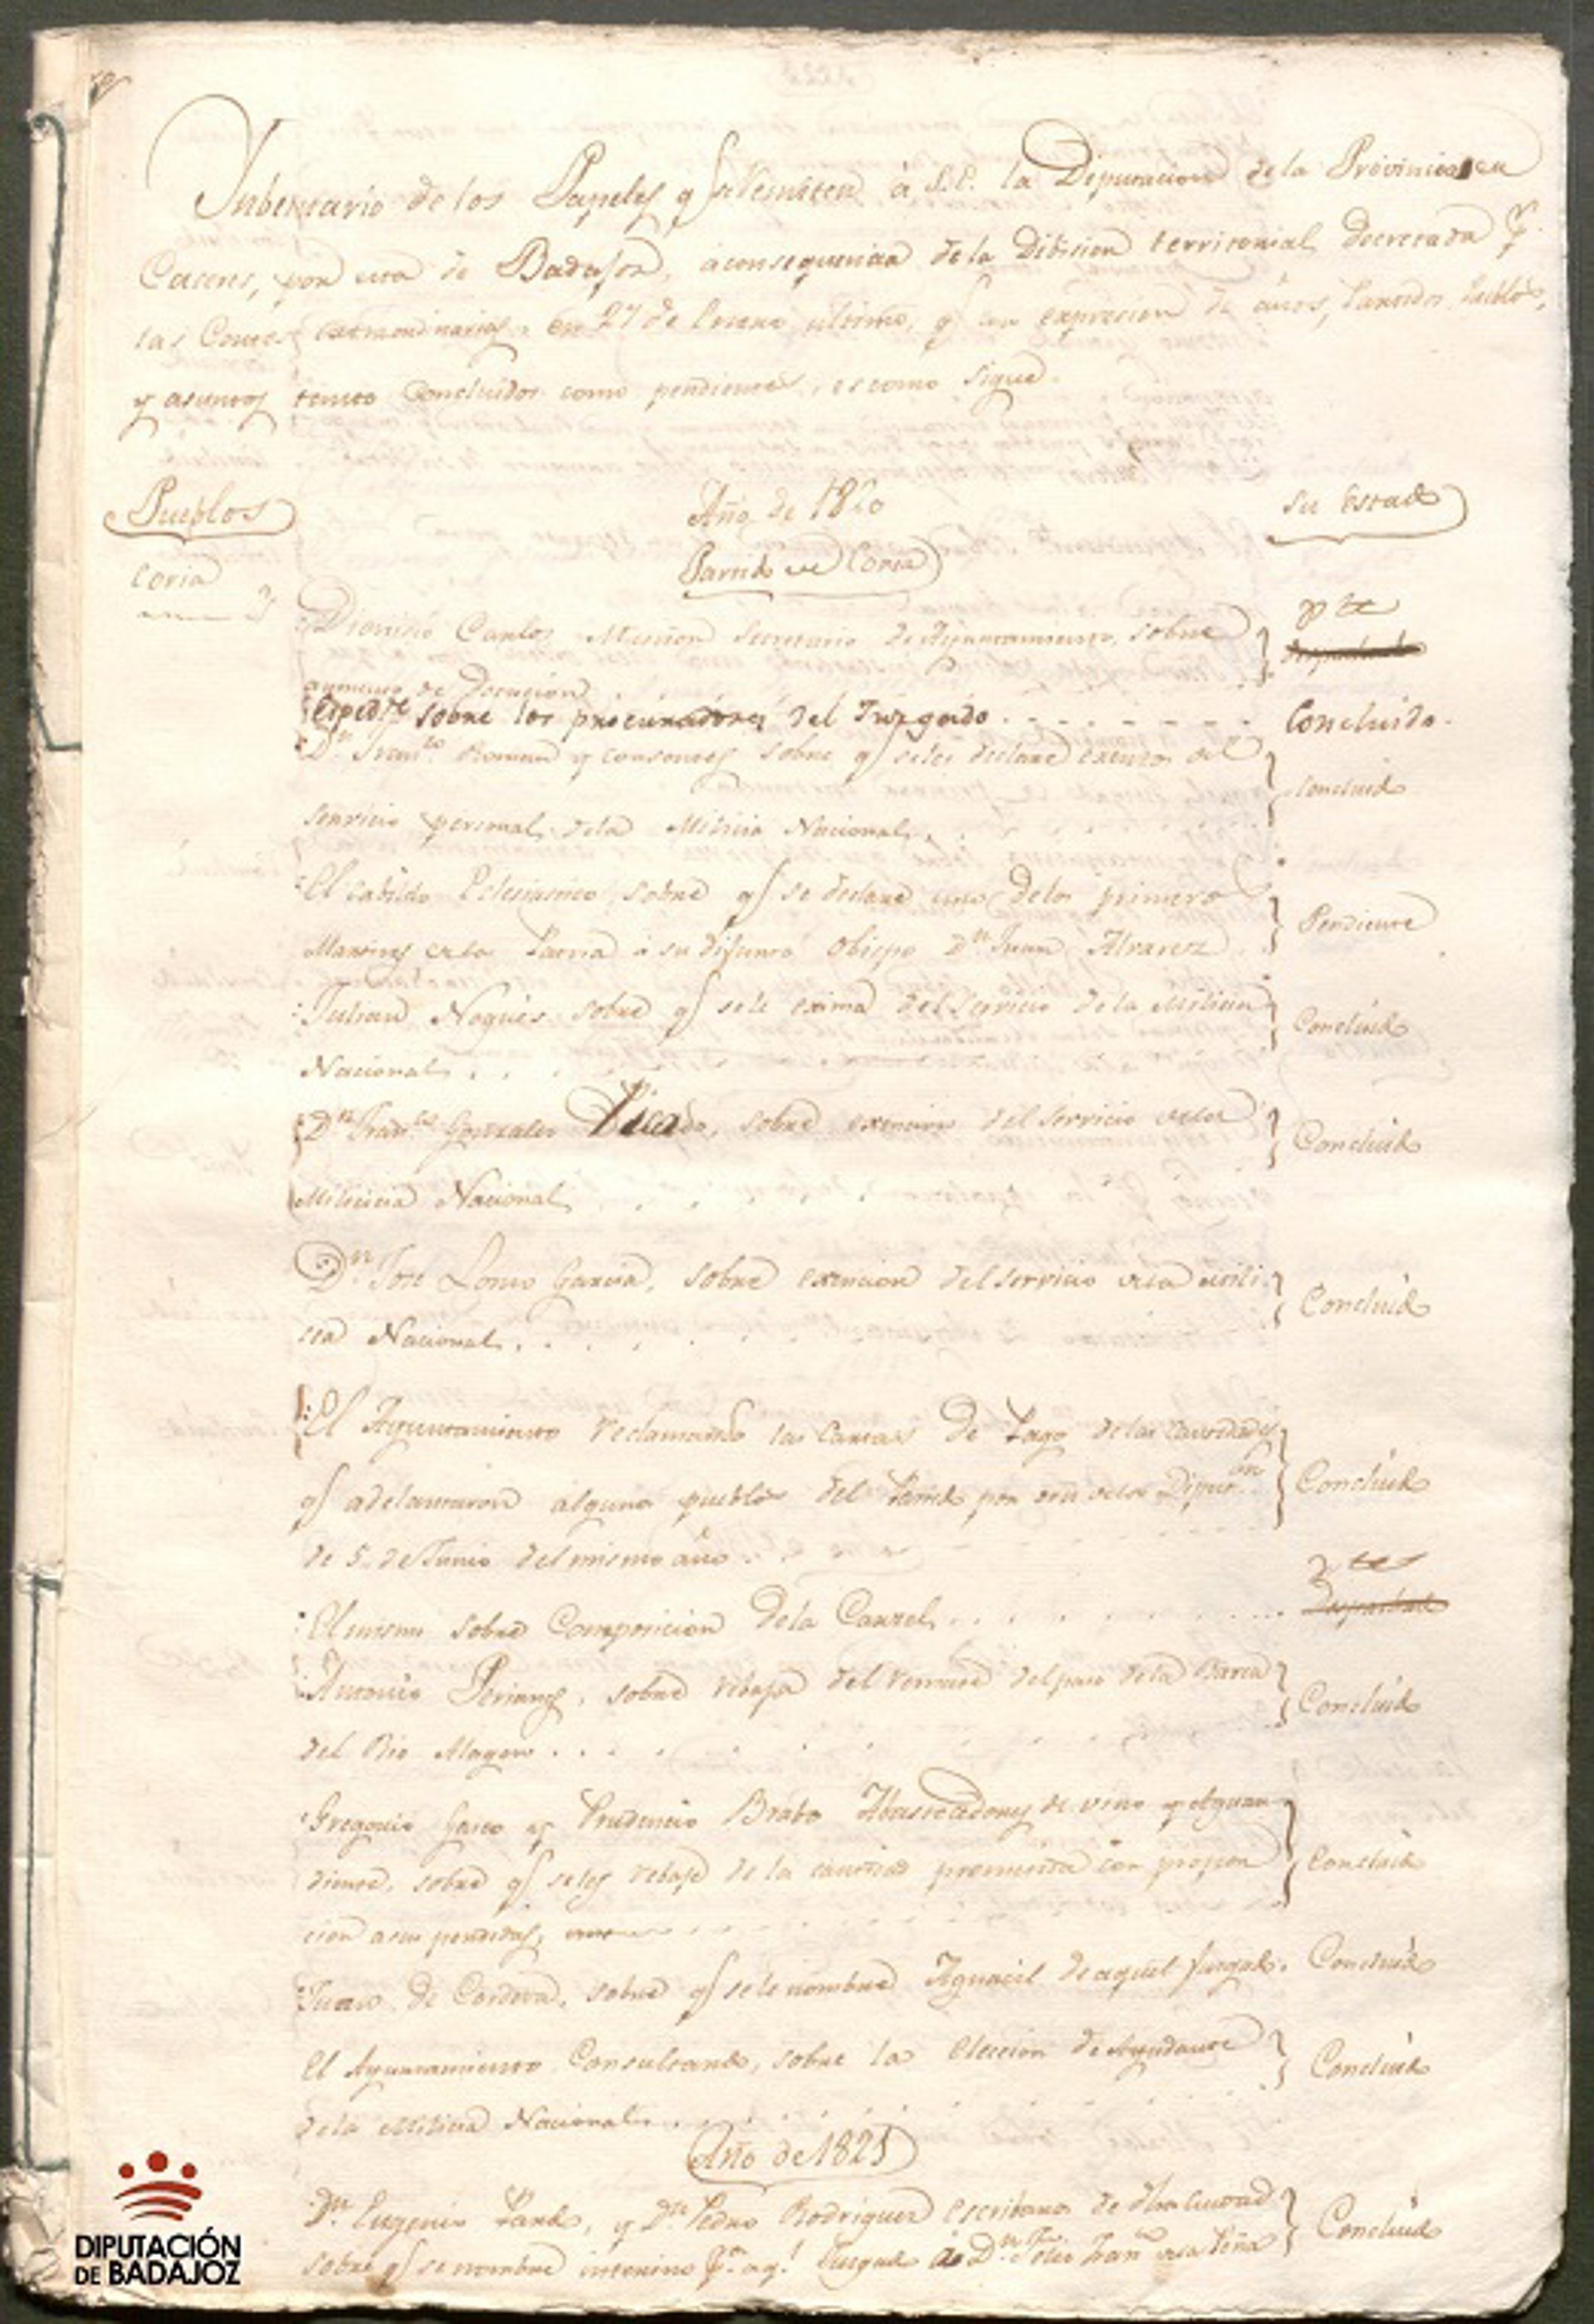 Inbentario de los Papeles q̃ se Remiten à S.E. la Diputacion de la Provincia en
Caceres, por esta de Badajoz, a consequencia de la Dibision territorial decretada p.r
las Cortes extraordinarias en 27 de Enero ultimo, q̃ con expresion de años, Partidos, Pueblos,
y asuntos tanto Concluidos como pendientes, es como sigue.
Pueblos
Año de 1820
Su Estado
Coria
Partido de Coria
Dionisio Carlos Secretario de Ayuntamiento, sobre
aumento de Dotacion
p.te
Despachado
Exped.te sobre los procuradores del Juzgado
Concluido.
D.n Fran.co Roman y consortes sobre q̃ se les declare exentos del
servicio personal de la Milicia Nacional
Concluido
El Cabildo Eclesiastico sobre q̃ se declare uno de los primeros
Martires de la Patria a su difunto Obispo D.n Juan Alvarez
Pendiente
Julian Nogués sobre q̃ se le exima del Servicio de la Milicia
Nacional
Concluido
D.n Fran.co Gonzalez Picado, sobre exencion del Servicio de la
Milicia Nacional
Concluido
D.n José Lomo Garcia, sobre exencion del servicio de la mili
cia Nacional
Concluido
El Ayuntamiento reclamando las Cartas de Pago de las cantidades
q̃ adelantaron algunos pueblos del Partido por orn de la Diput.on
de 5 de Junio del mismo año
Concluido
El mismo sobre Composicion de la Carzel
p.tes
Despachado
Antonio Perianes, sobre rebaja del remate del paso de la Barca
del Rio Alagon
Concluido
Gregorio Gasco y Prudencio Brabo Abastecedores de vino y Aguar
diente, sobre q̃ se les rebaje de la cantidad prometida con propor
cion a sus perdidas,
Concluido
Juan de Cordova, sobre q̃ se le nombre Alguacil de aquel Juzgado.
Concluido
El Ayuntamiento Consultando, sobre la Eleccion de Ayudante
de la Milicia Nacional
Concluido
Año de 1821
D.n Eugenio Pardo, y D.n Pedro Rodriguez escribanos de dha Ciudad
sobre q̃ se nombre interino p.a aq.l Juzgado á D.n Felix Fran.co de la Peña
Concluido
DIPUTACIÓN
DE BADAJOZ